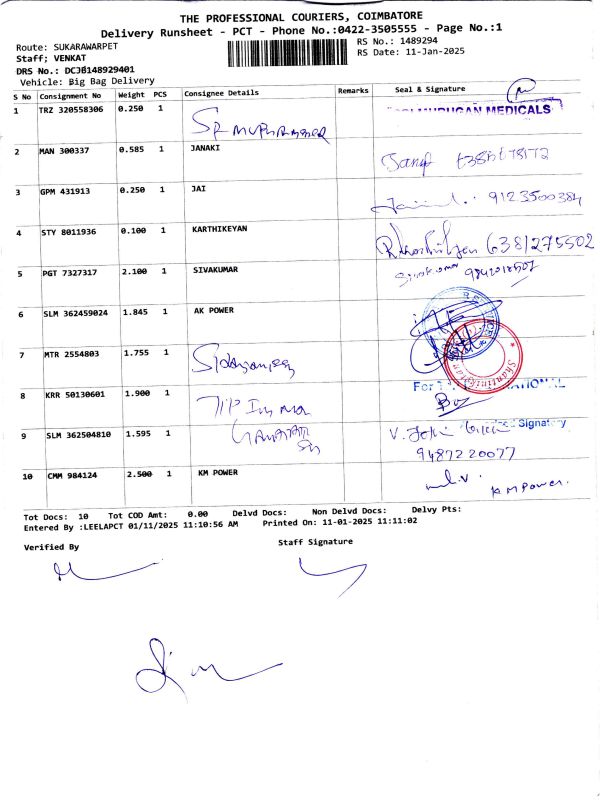 THE PROFESSIONAL COURIERS, COIMBATORE
Delivery Runsheet - PCT - Phone No.:0422-3505555 - Page No.:1
Route: SUKARAWARPET
RS No.: 1489294
Staff; VENKAT
RS Date: 11-Jan-2025
DRS No.: DCJ0148929401
Vehicle: Big Bag Delivery
S No Consignment No Weight PCS Consignee Details Remarks Seal & Signature
1 TRZ 320558306 0.250 1 MURUGAN MEDICALS
2 MAN 300337 0.585 1 JANAKI
3 GPM 431913 0.250 1 JAI 9123500384
4 STY 8011936 0.100 1 KARTHIKEYAN 6381275502
5 PGT 7327317 2.100 1 SIVAKUMAR
6 SLM 362459024 1.845 1 AK POWER
7 MTR 2554803 1.755 1
For
8 KRR 50130601 1.900 1 TIP
Signatory
9 SLM 362504810 1.595 1 GANAPATHI
9487220077
10 CMM 984124 2.500 1 KM POWER KM Power.
Tot Docs: 10 Tot COD Amt: 0.00 Delvd Docs: Non Delvd Docs: Delvy Pts:
Entered By :LEELAPCT 01/11/2025 11:10:56 AM Printed On: 11-01-2025 11:11:02
Verified By Staff Signature